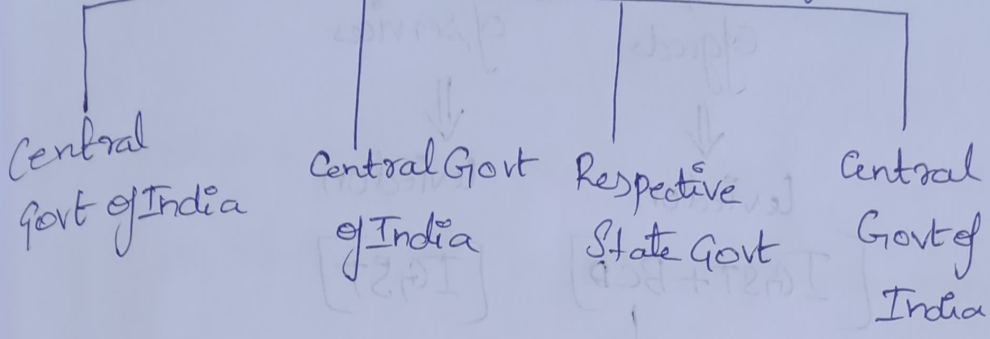 Central
Govt of India
Central Govt
of India
Respective
State Govt
Central
Govt of
India